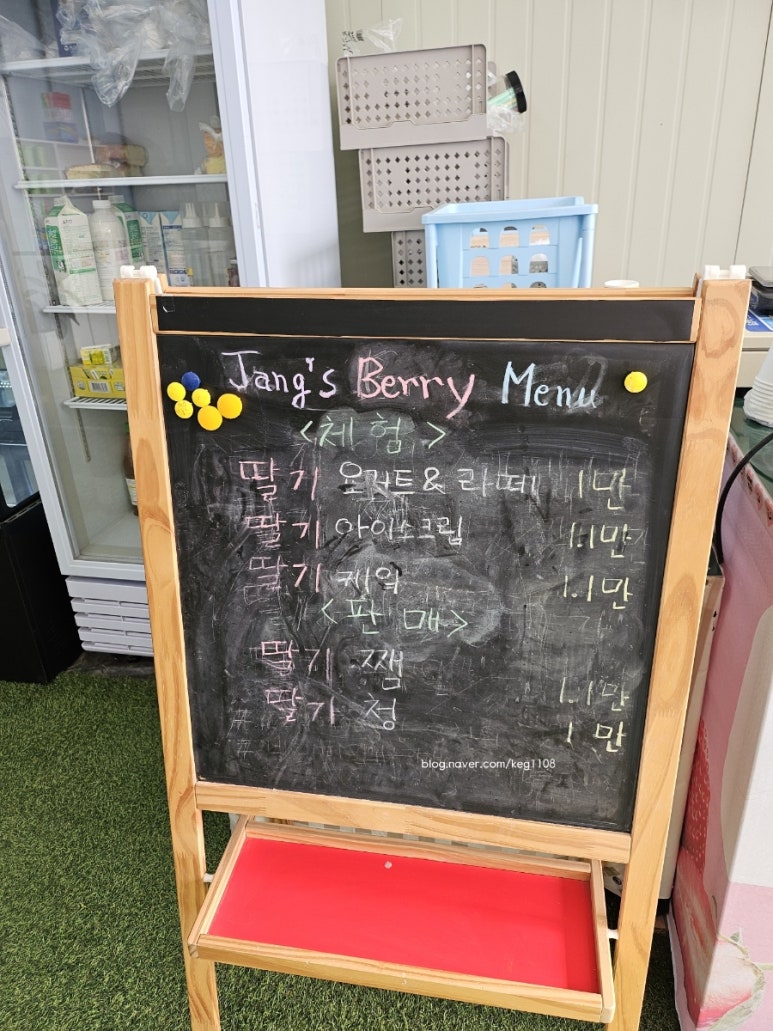 Jang's Berry Menu
<체험>
딸기 요거트&라떼 1만
딸기 아이스크림 1.1만
딸기 케익 1.1만
<판매>
딸기 쨈 1.1만
딸기 청 1.만
blog.naver.com/keg1108